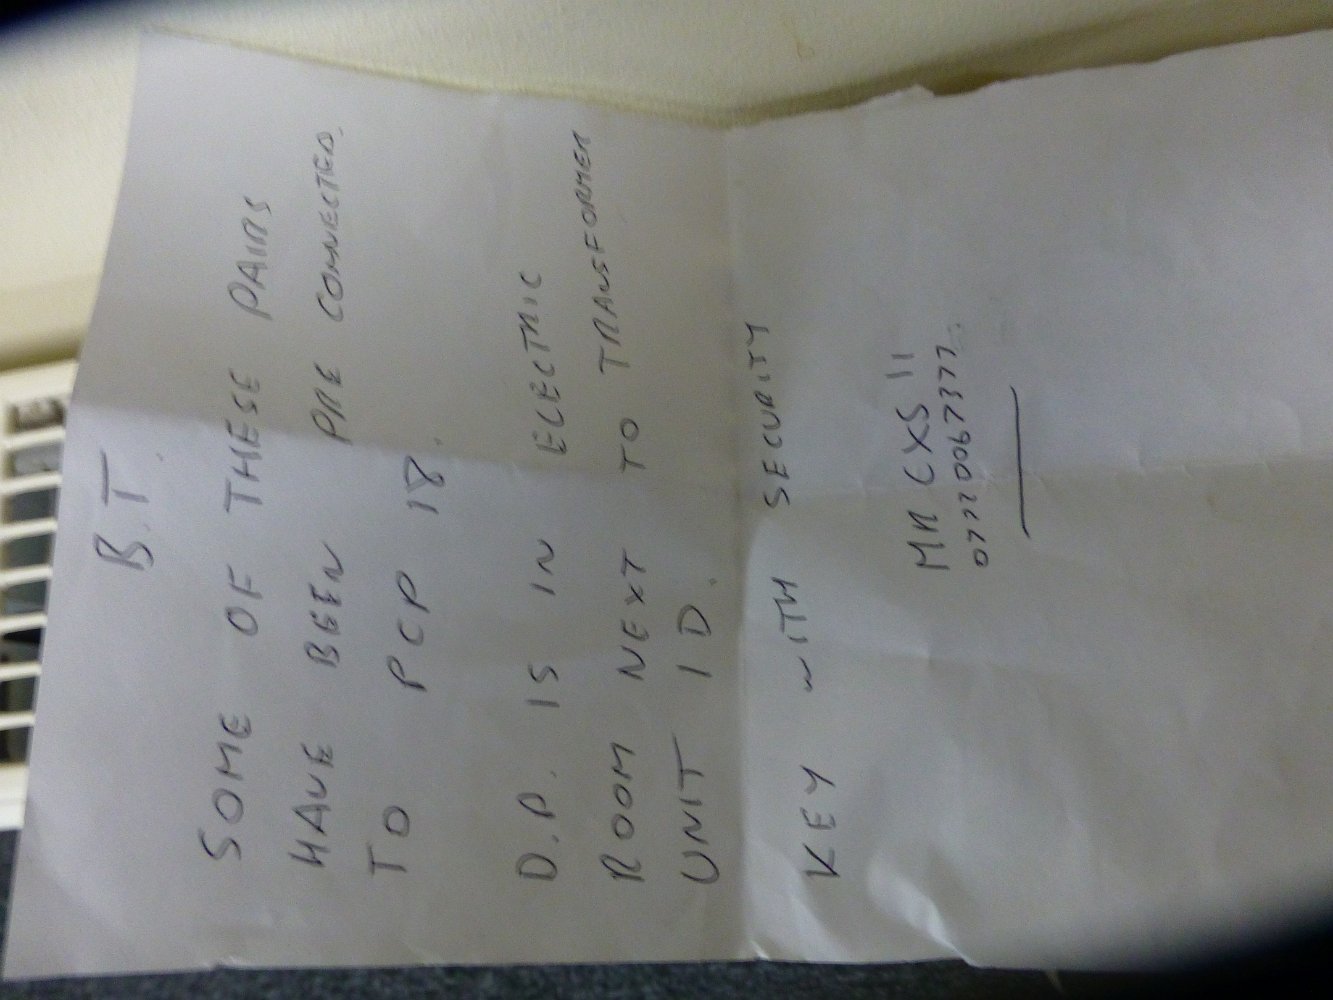 B.T.
SOME OF THESE PAIRS
HAVE BEEN PRE CONNECTED.
TO PCP 18.
D.P. IS IN ELECTRIC
ROOM NEXT TO TRANSFORMER
UNIT 1D.
KEY WITH SECURITY
MR CXS 11
07720067377